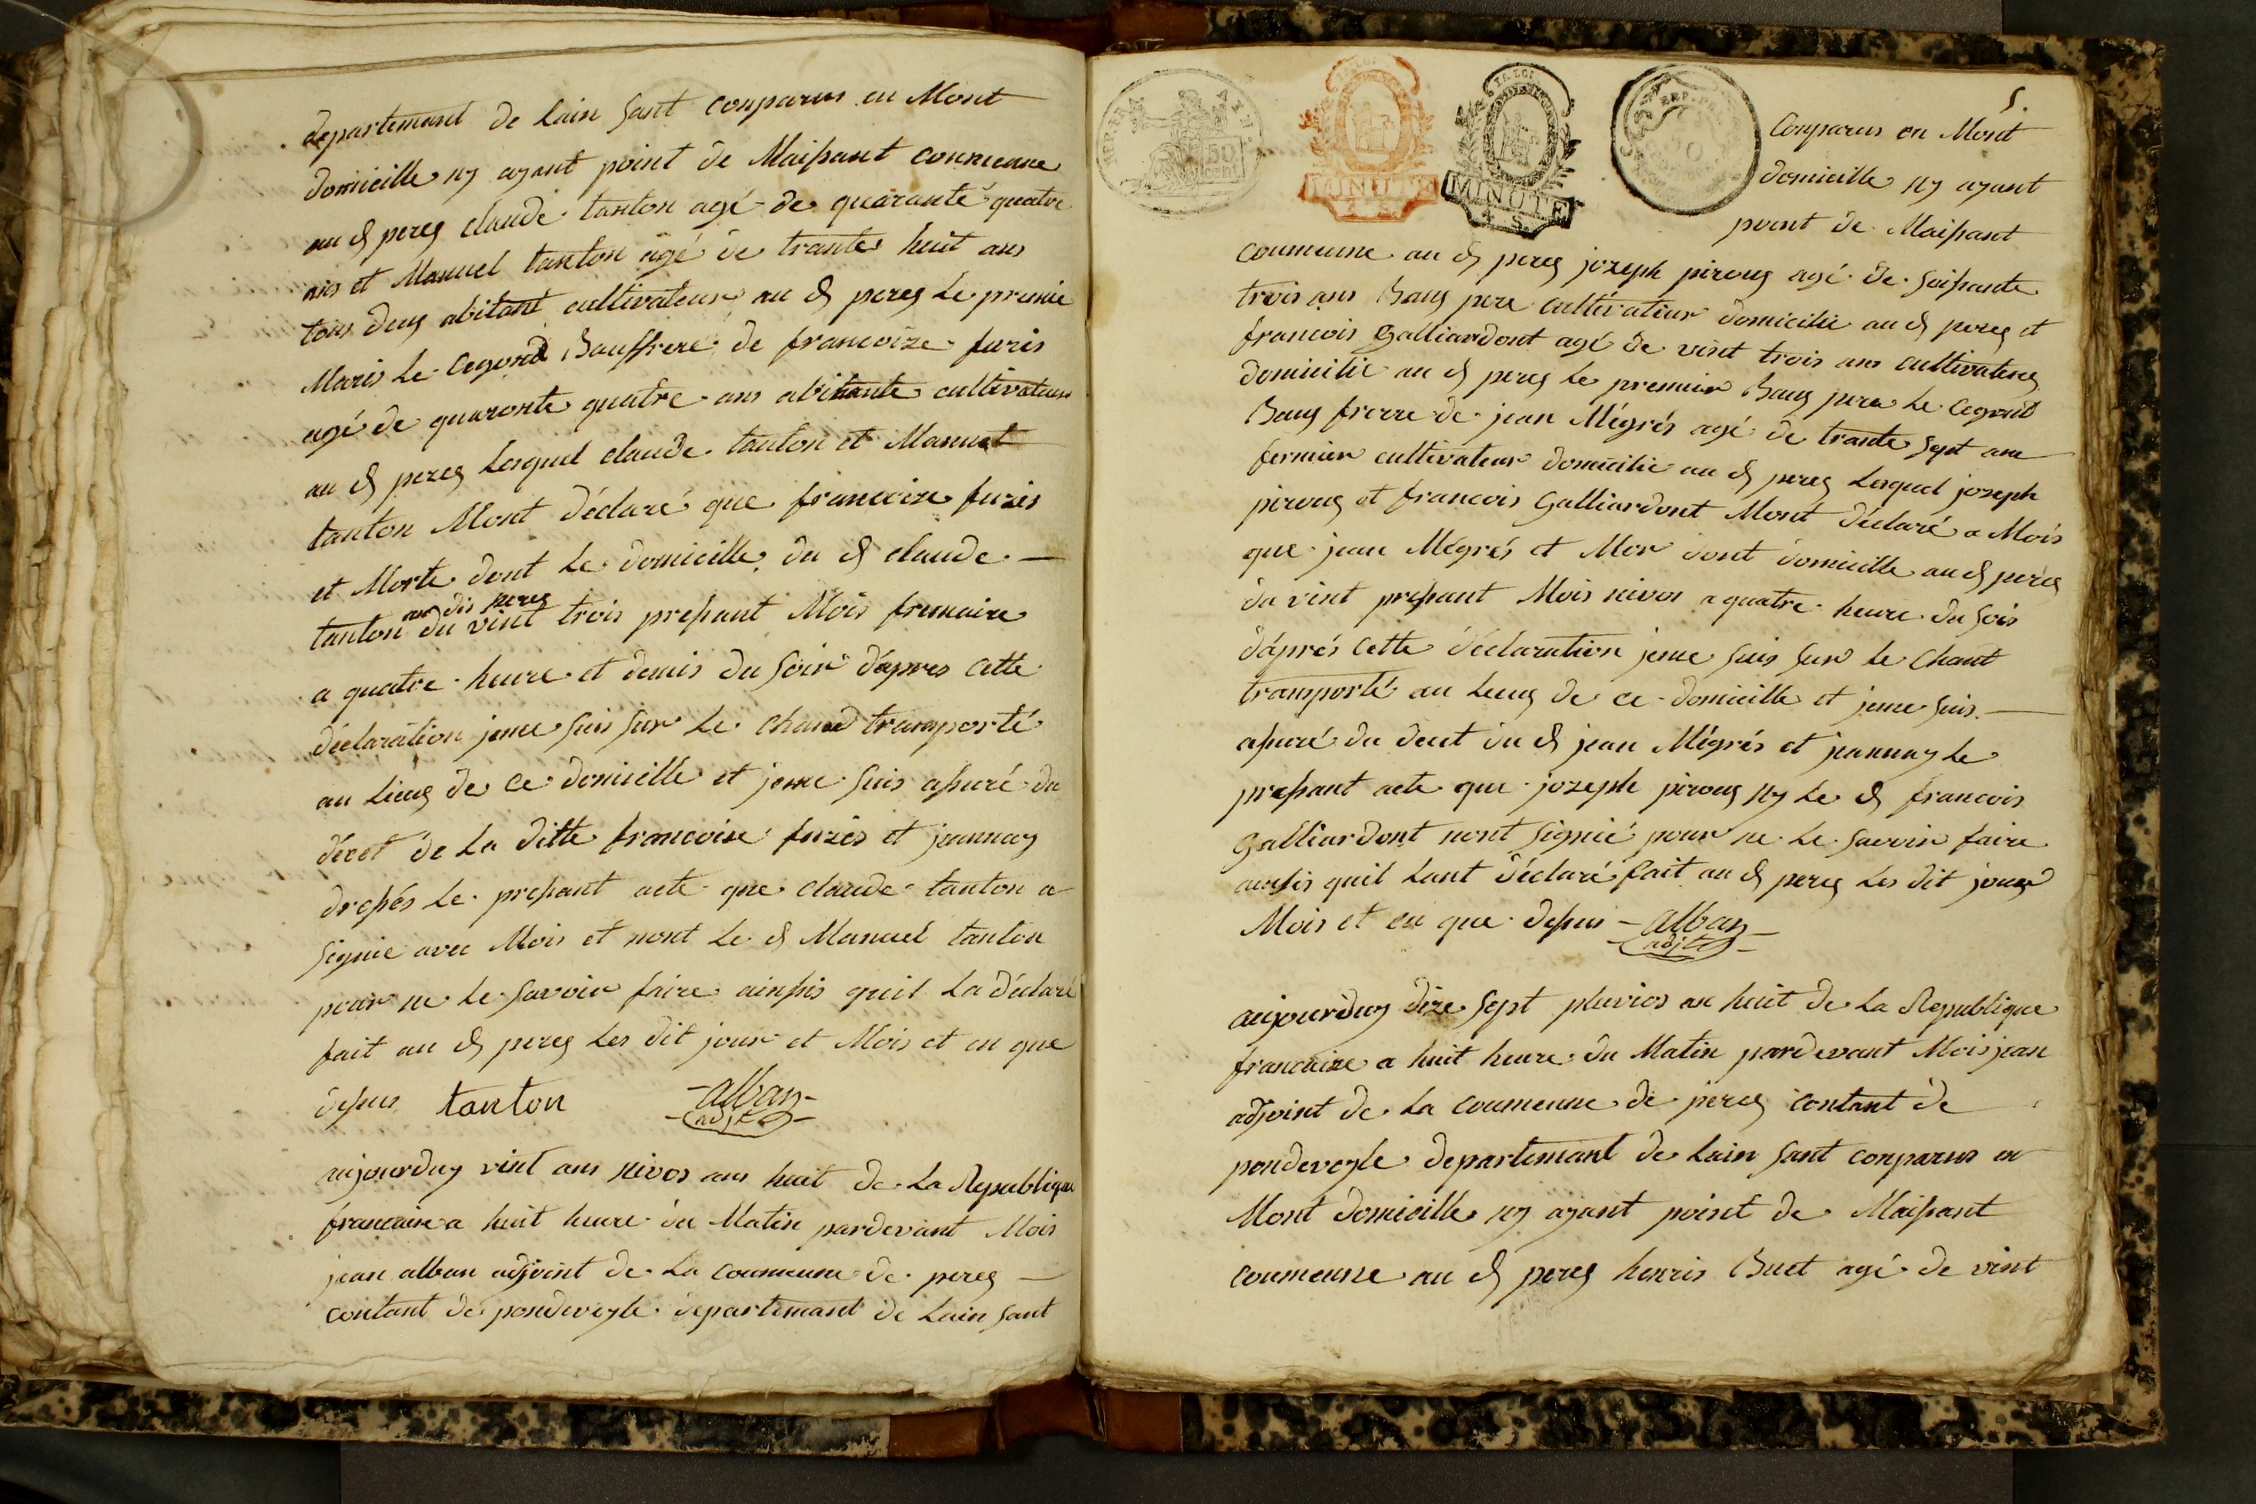 departement de Lain sant conparus en Mont
domicille ny ayant point de Maisant coumeune
au d perez claude tanton agé de quarante quatre
ans et Manuel tanton agé de trante huit ans
tous deuz abitant cultivateur au d perez Le premie
Maris Le Cegond Bauffrere de francoize furis
agé de quaronte quatre ans abitante cultivateur
au d perez Lesquel claude tanton et Manuel
tanton Mont déclaré que francoize furis
et Morte dont Le domicille du d claude
au dis perez
tanton du vint trois present Mois frimaire
a quatre heure et demis du soir dapres cette
déclaration jeme suis sur Le chand transporté
au Lieuz de ce domicille et jeme suis assuré du
décet de La ditte francoise furis et jeannay
dressés Le present acte que claude tanton a
signie avec Mois et nont Le d Manuel tanton
pour ne Le savoir faire ainssis quil La déclaré
fait au d perez Les dit jour et Mois et en que
dessus tanton alban
adjt
aujourduy vint ans nivos ans huit de La Republique
francaise a huit heure du Matin pardevant Mois
jean alban adjoint de La coumeune de perez
contant de pondeveyle departemant de Lain sant
5.
REP. FRA.
50 cent
LA LOI
MINUTE
4 S.
LA LOI
MINUTE
4 S.
Conparus en Mont
domicille ny ayant
point de Maissant
coumeune au d perez jozeph pirouz agé de soissante
trois ans Bauz pere cultivateur domicilie au d perez et
francois Galliardont agé de vint trois ans cultivateuz
domicilie au d perez Le premier Bauz pere Le Cegont
Bauz frerre de jean Mégrés agé de trante sept ans
fermier cultivateur domicilie au d perez Lesquel jozeph
pirouz et francois Galliardont Mont déclaré a Mois
que jean Mégrés et Mor dont domicille au d perez
du vint pressant Mois nivos a quatre heure du sois
daprés cette déclaration jeme suis sur Le Chant
transporté au Lieuz de ce domicille et jeme suis
assuré du decet du d jean Mégrés et jeannay Le
pressant acte que jozeph pirouz ny Le d francois
Galliardont nont signié pour ne Le savoir faire
ainssis quil Lant déclaré fait au d perez Les dit jour
Mois et en que dessus alban
adjt
aujourduy dize sept pluvios an huit de La Republique
francaize a huit heure du Matin pardevant Mois jean
adjoint de La coumeune de perez contant de
pondeveyle departemant de Lain sant conparus en
Mont domicille ny ayant point de Maissant
coumeune au d perez henris Buet agé de vint